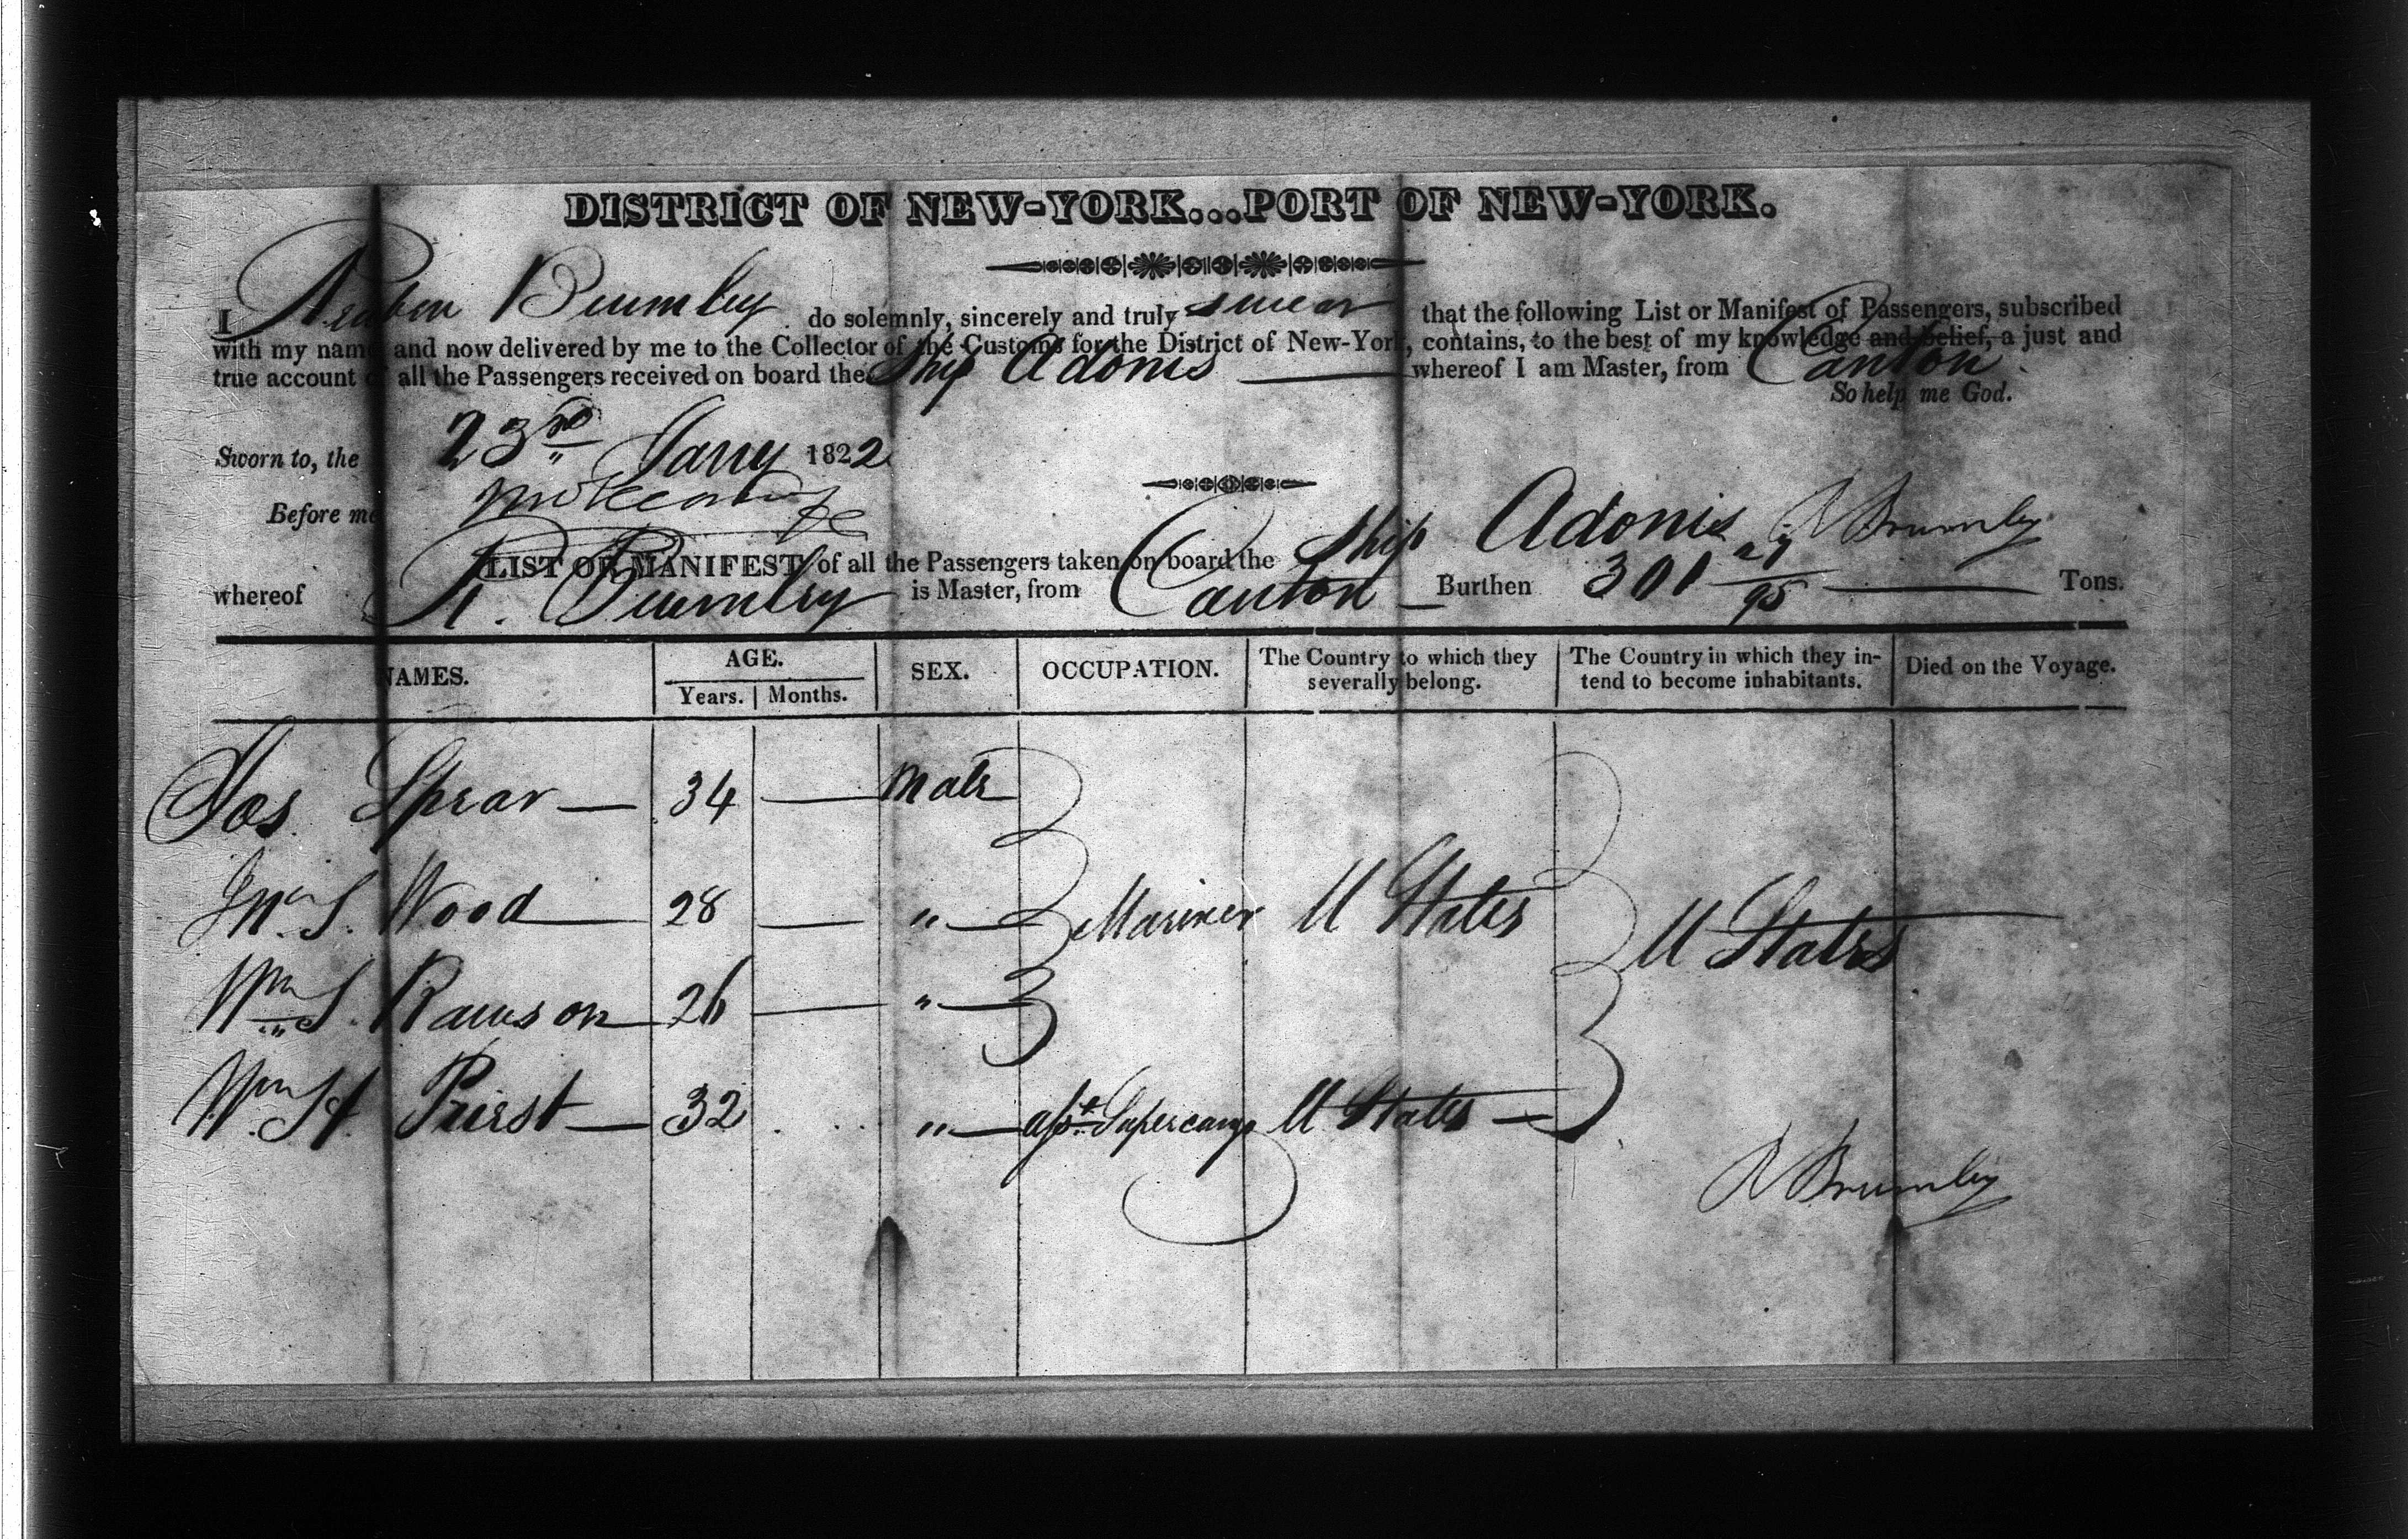 DISTRICT OF NEW-YORK...PORT OF NEW-YORK.
I Reuben Brumley do solemnly, sincerely and truly swear that the following List or Manifest of Passengers, subscribed
with my name and now delivered by me to the Collector of the Customs for the District of New-York, contains, to the best of my knowledge and belief, a just and
true account of all the Passengers received on board the Ship Adonis whereof I am Master, from Canton.
So help me God.
Sworn to, the 23rd Jany 1822
Before me
R Brumley
LIST OR MANIFEST of all the Passengers taken on board the Ship Adonis
whereof R. Brumley is Master, from Canton Burthen 301 27/95 Tons.
NAMES. AGE. SEX. OCCUPATION. The Country to which they severally belong. The Country in which they intend to become inhabitants. Died on the Voyage.
Years. Months.
Jos Spear — 34 — Male
Jno S. Wood — 28 — " — Mariner U States U States
Wm S. Rawson — 26 — " —
Wm H. Priest — 32 . . . " — asst Supercargo U States —
R Brumley